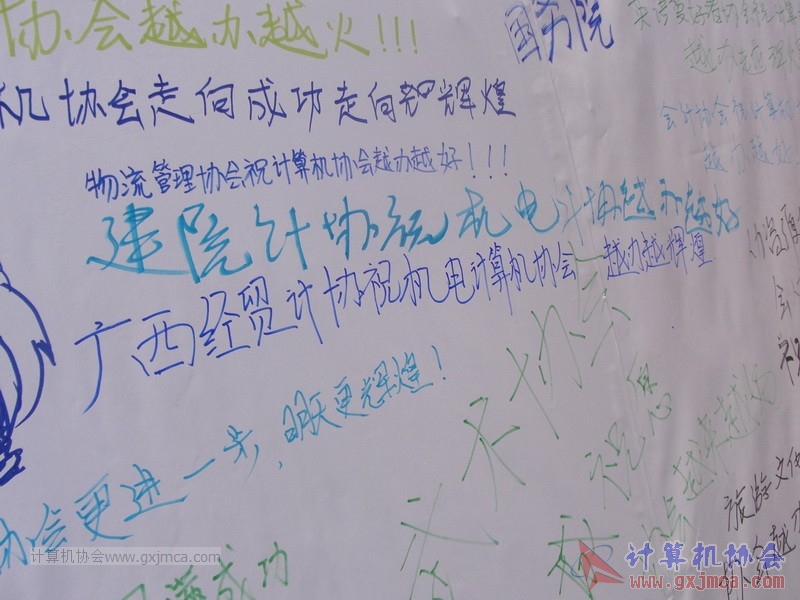 协会越办越火!!!
国务院
机协会走向成功走向辉煌
越办越
会计协会祝计算机
越办越好
物流管理协会祝计算机协会越办越好!!!
建院计协祝机电计协越办越好
广西经贸计协祝机电计算机协会 越办越辉煌
协会更进一步,明天更辉煌!
祝您
越来越
旅游文化
成功
计算机协会 www.gxjmca.com
计算机协会
www.gxjmca.com